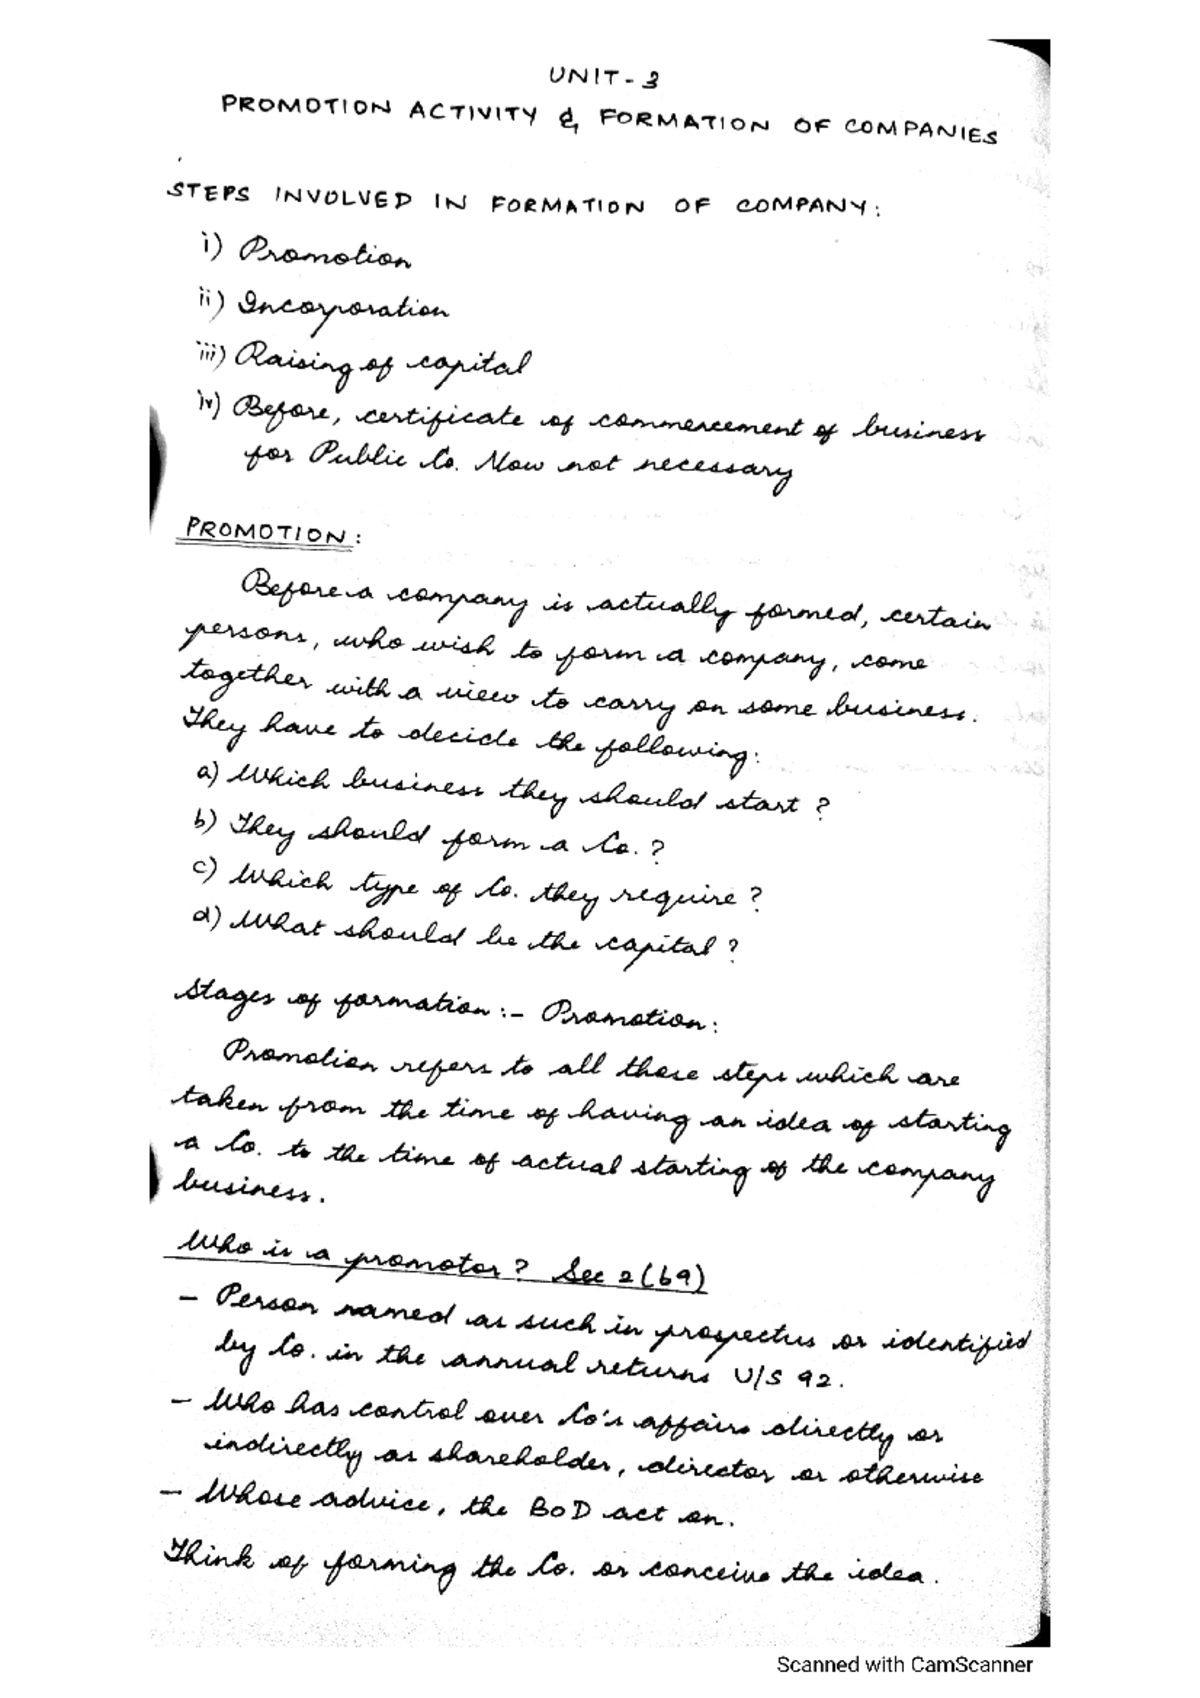 UNIT - 3
PROMOTION ACTIVITY & FORMATION OF COMPANIES
STEPS INVOLVED IN FORMATION OF COMPANY:
i) Promotion
ii) Incorporation
iii) Raising of capital
iv) Before, certificate of commencement of business
for Public Co. Now not necessary
PROMOTION:
Before a company is actually formed, certain
persons, who wish to form a company, come
together with a view to carry on some business.
They have to decide the following:
a) Which business they should start?
b) They should form a Co.?
c) Which type of Co. they require?
d) What should be the capital?
Stages of formation:- Promotion:
Promotion refers to all those steps which are
taken from the time of having an idea of starting
a Co. to the time of actual starting of the company
business.
Who is a promotor? Sec 2(69)
- Person named as such in prospectus or identified
by Co. in the annual returns U/S 92.
- Who has control over Co's affairs directly or
indirectly as shareholder, director or otherwise
- Whose advice, the BoD act on.
Think of forming the Co. or conceive the idea.
Scanned with CamScanner